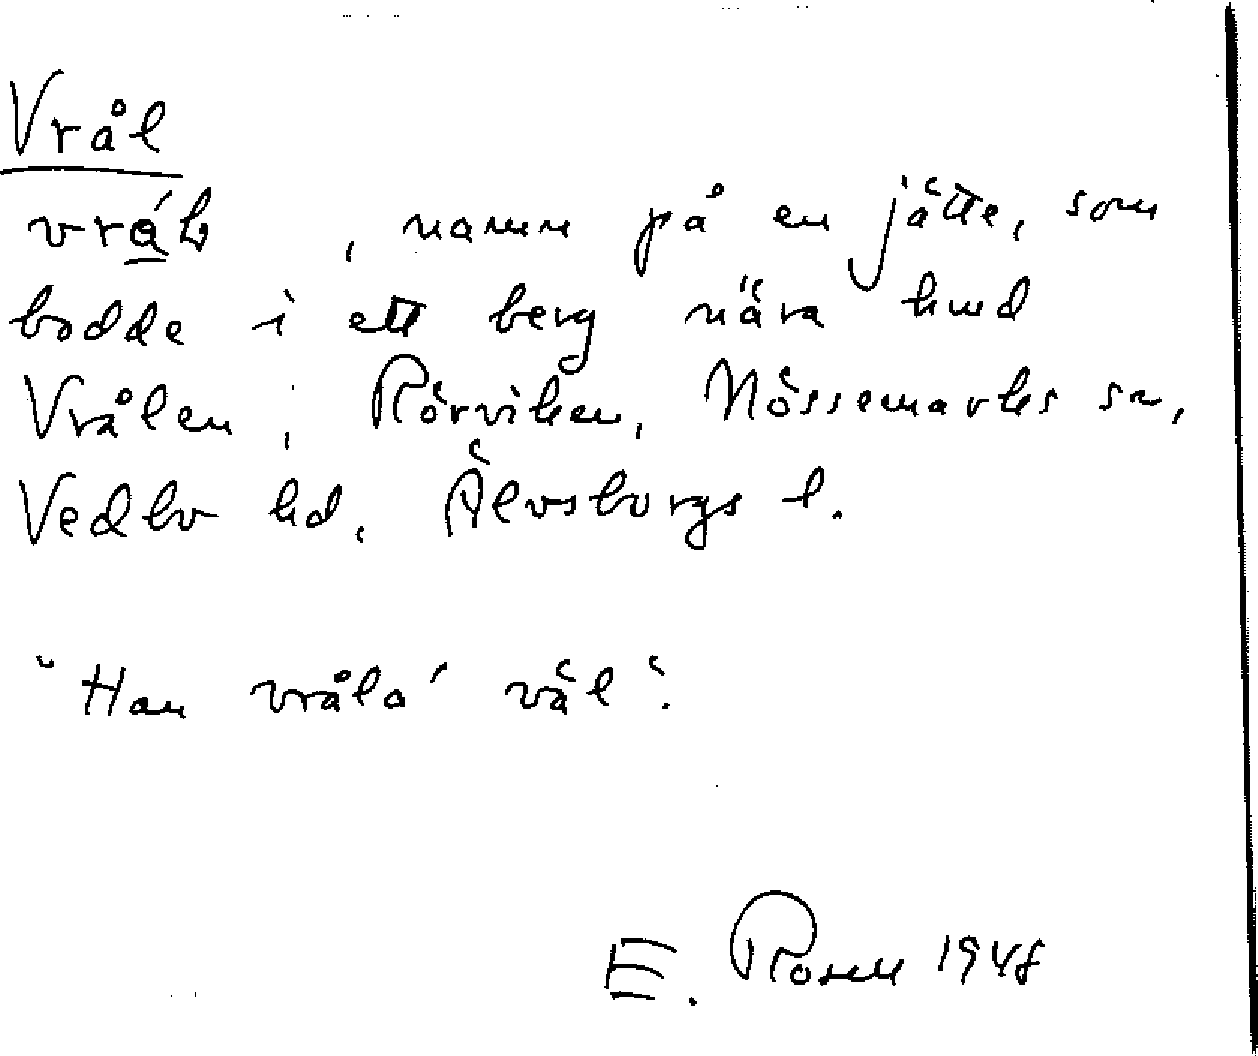 Vrål
, namn på en jätte, som
bodde i ett berg nära hmd
Vrålen, Rörviken, Nössemarks sn,
Vedbo hd. Älvsborgs l.
"Han vråla' väl".
E. Rosen 1948